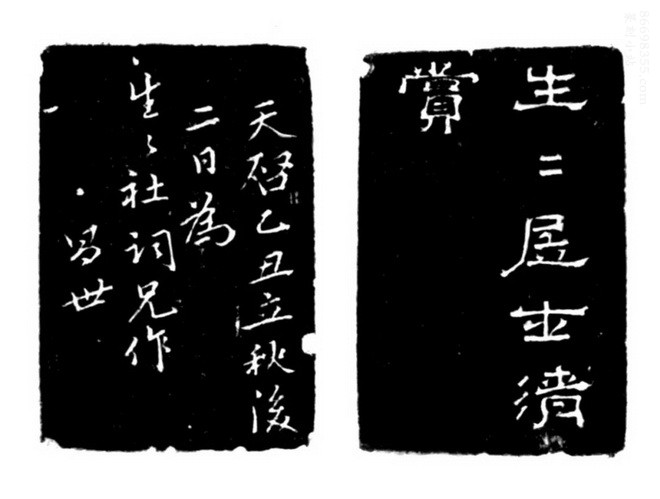 生二居士清
賞
天啓乙丑立秋後
二日為
生〻社詞兄作
昌世